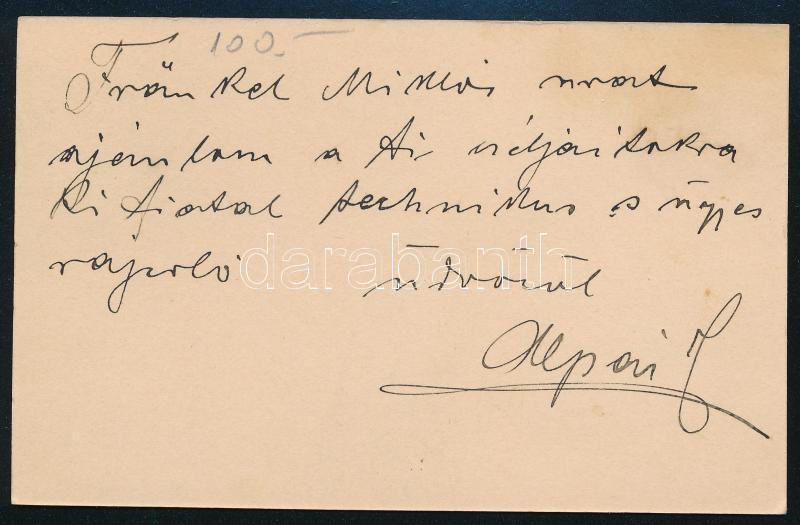 100.-
Fränkel Miklós urat
ajánlom a Ti céljaitokra
ki fiatal technikus s ügyes
rajzoló üdvözöl
Alpár I
darabanth